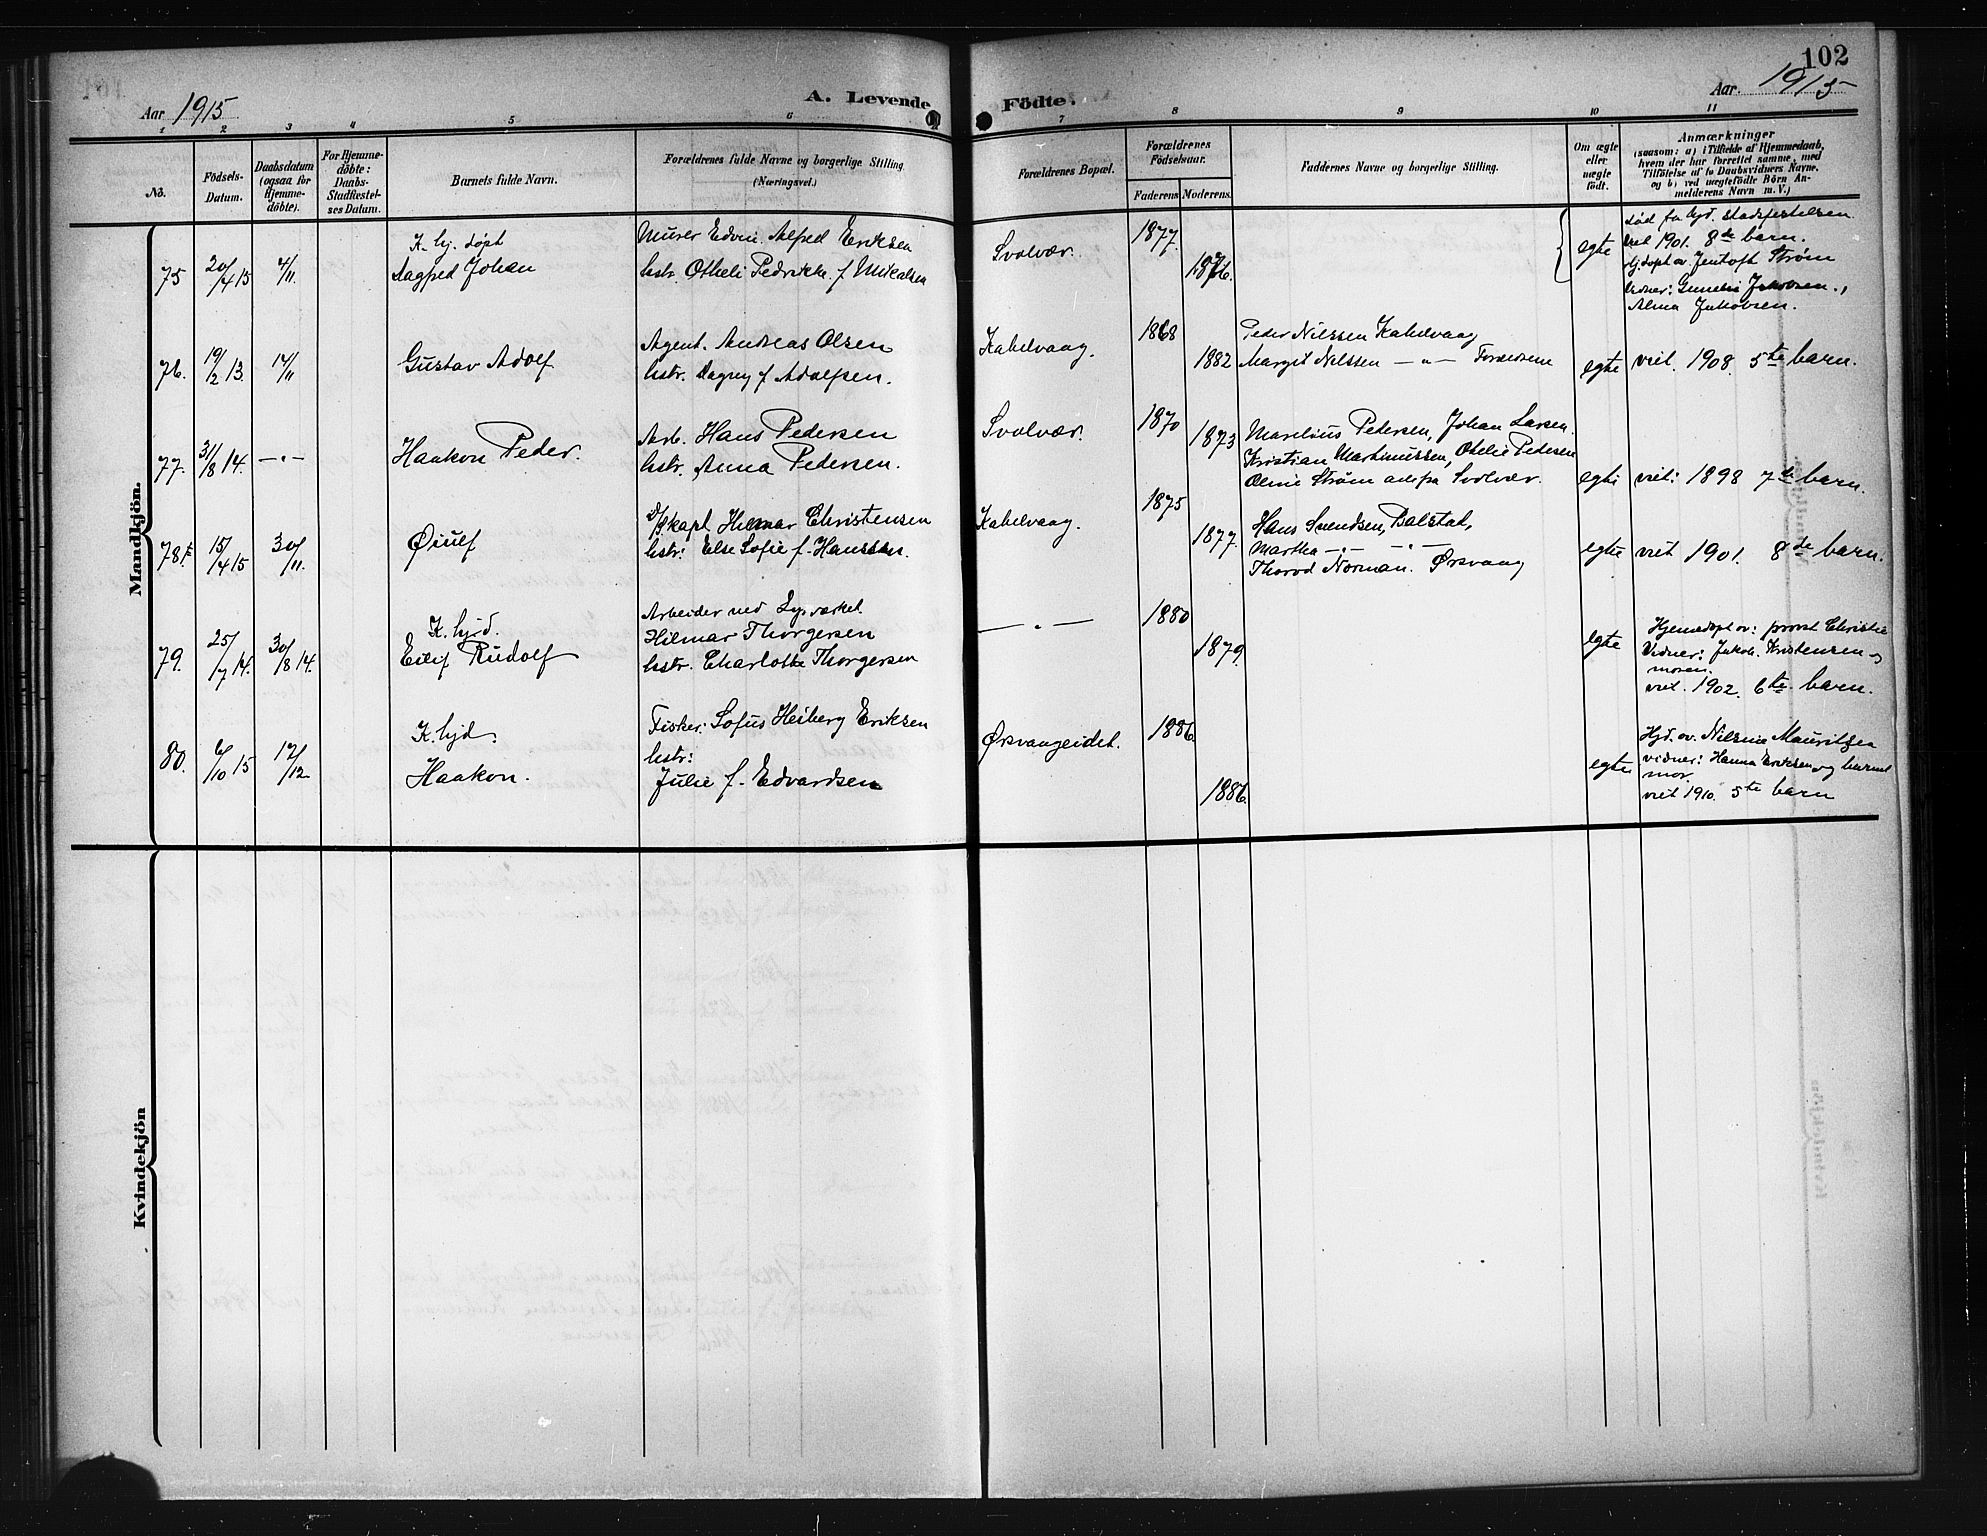 102
Aar 1915
A. Levende Födte.
Aar 1915
1 2 3 4 5 6 7 8 9 10 11
No.
Födsels-Datum.
Daabsdatum (ogsaa for Hjemme-döbte).
For Hjemme-döbte: Daabs-Stadfæstelses Datum.
Barnets fulde Navn.
Forældrenes fulde Navne og borgerlige Stilling (Næringsvei.)
Forældrenes Bopæl.
Forældrenes Födselsaar.
Faderens Moderens.
Faddernes Navne og borgerlige Stilling.
Om ægte eller uægte födt.
Anmærkninger
(saasom: a) i Tilfælde af Hjemmedaab,
hvem der har forrettet samme, med
Tilföielse af to Daabsvidners Navne,
og b) ved uægtefödte Börn An-
melderens Navn m. V.)
Mandkjön.
75 20/4 15 4/11
K. hj. döpt
Dagfred Johan
Murer Edvin Alfred Eriksen
hstr. Otheli Pedrikke f Mikalsen
Svolvær.
1877.
1876.
egte
død før hjd. stadfestelsen
viet 1901. 8de barn.
hj.døpt av. Jentoft Strøm
Vidner: Jakobsen.,
Alma Jakobsen.
76. 19/2 13. 14/11
Gustav Adolf
Agent. Andreas Olsen
hstr. Dagny f Adolfsen.
Kabelvaag.
1868
1882
Peder Nilssen Kabelvaag
Margit Nelssen — " — Forældrene
egte
viet. 1908. 5te barn.
77. 31/8 14. — " —
Haakon Peder.
Arb. Hans Pedersen
hstr. Anna Pedersen.
Svolvær.
1870
1873
Marelius Pedersen, Johan Larsen.
Kristian Martinussen, Otelie Pedersen
Oline Strøm allefra Svolvær.
egte
viet: 1898 7de barn.
78. 15/4 15 30/11
Øiulf
D/Skapt Hilmar Christensen
hstr: Else Sofie f. Hanssen.
Kabelvaag.
1875
1877.
Hans Svendsen, Balstad,
Martha — " — — " —
Thorvd Norman. Ørsvaag
egte
viet 1901. 8de barn.
79. 25/7 14. 30/8 14.
K. hjrd.
Eilif Rudolf
Arbeider ved Lysverket
Hilmar Thorgersen
hstr. Charlotte Thorgersen
— " —
1880
1879.
egte
Hjemedøpt av: prost Christie
Vidner: Jakob. Kristensen og
moren.
viet. 1902. 6te barn.
80. 6/10 15 12/12
K. hjd.
Haakon.
Fisker: Sofus Heiberg Eriksen
hstr:
Julie f. Edvardsen
Ørsvaageidet.
1886.
1886.
egte
Hjd. av. Nilsine Mauritsen
vidner: Hanna Eriksen og barnets
mor.
viet 1910. 5te barn
Kvindekjön